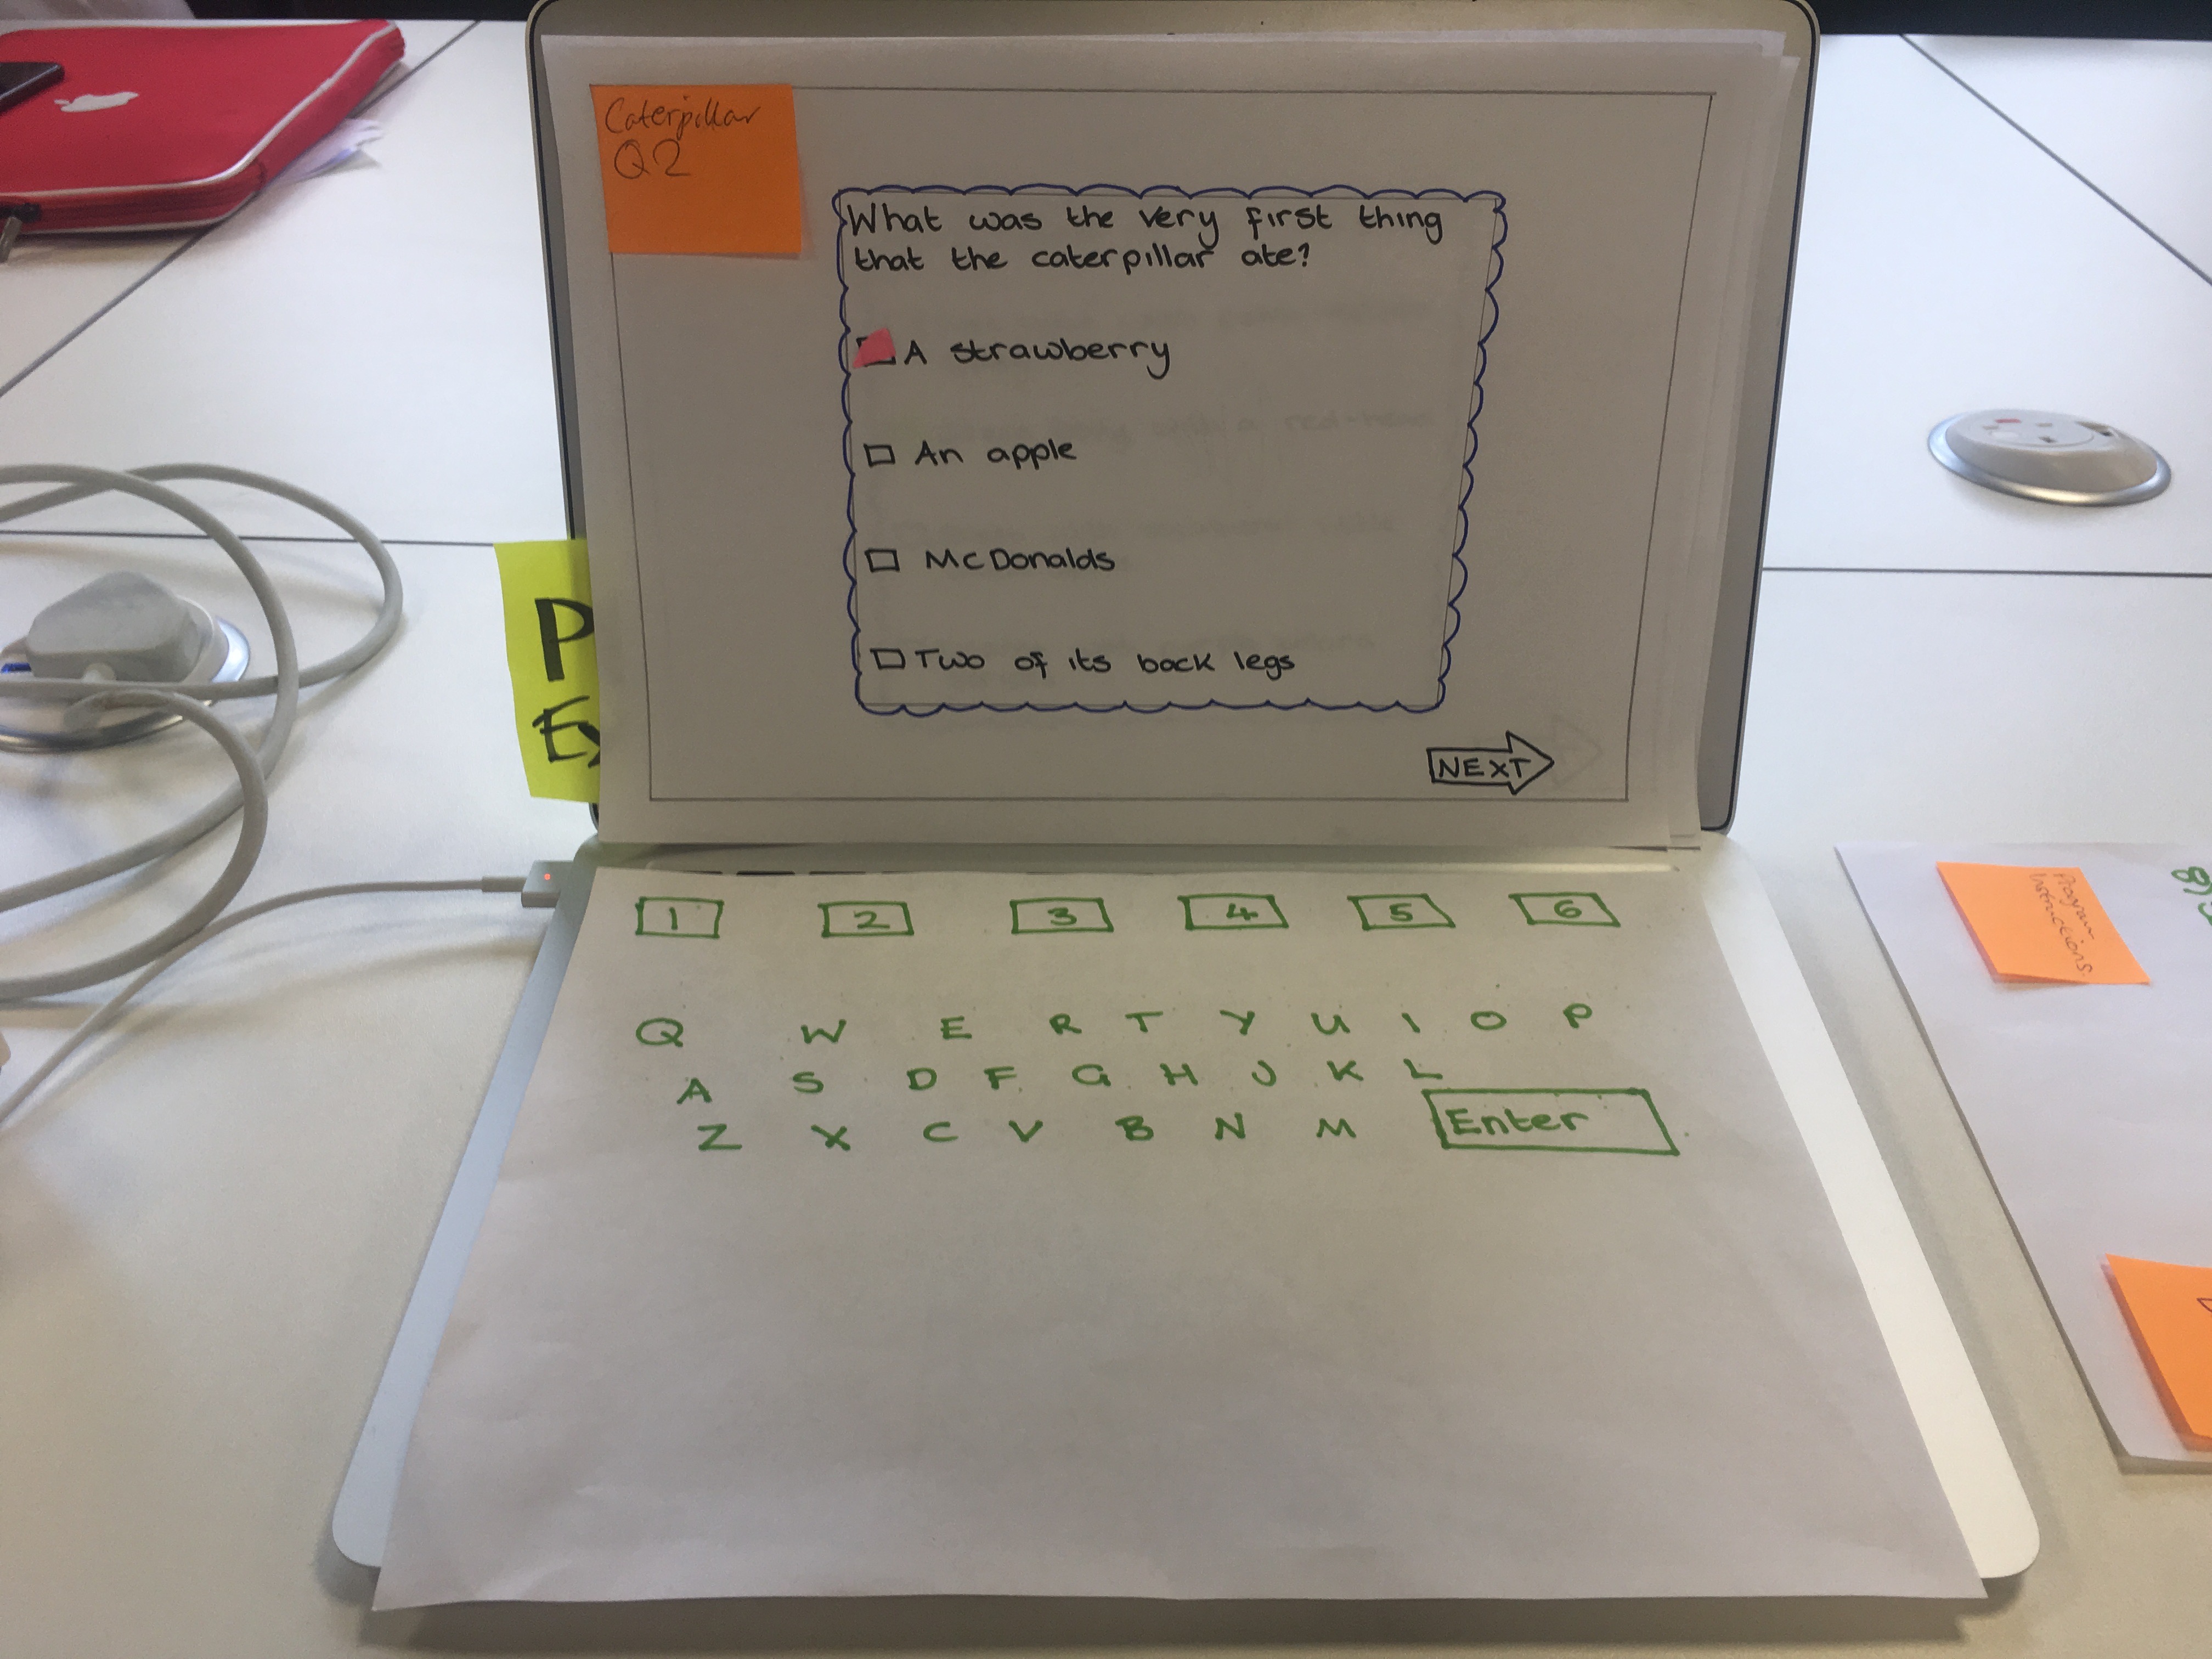 Caterpillar
Q2
What was the very first thing
that the caterpillar ate?
A strawberry
An apple
McDonalds
Two of its back legs
NEXT
P
Ex
1 2 3 4 5 6
Q W E R T Y U I O P
A S D F G H J K L
Z X C V B N M Enter
Program
Instructions